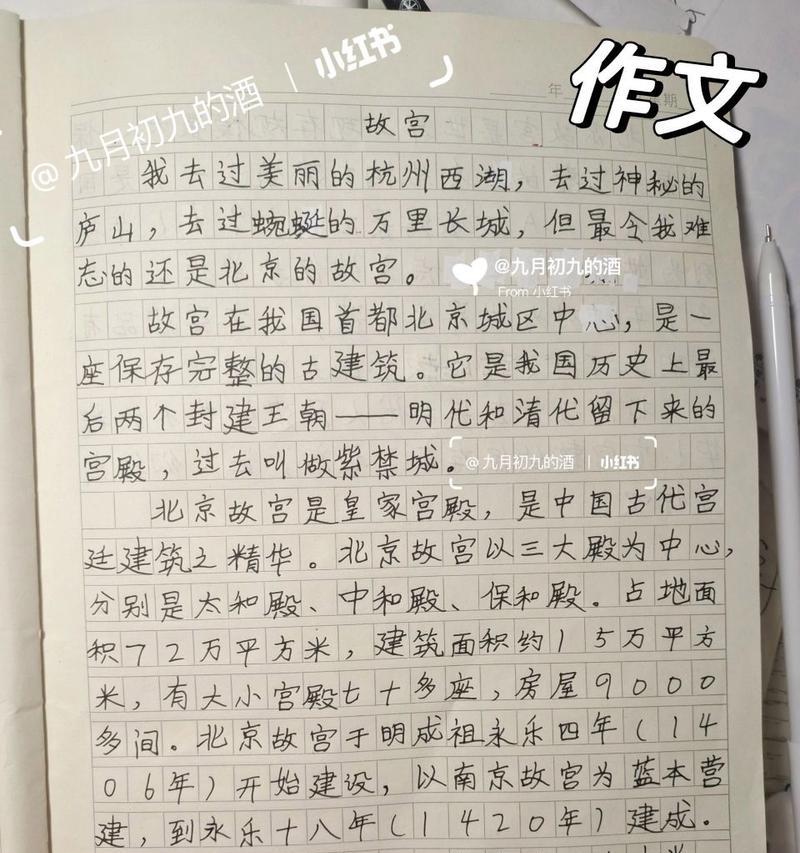 作文
@九月初九的酒 | 小红书
年
期
故宫
我去过美丽的杭州西湖，去过神秘的
庐山，去过蜿蜒的万里长城，但最令我难
忘的还是北京的故宫。
@九月初九的酒
From 小红书
故宫在我国首都北京城区中心，是一
座保存完整的古建筑。它是我国历史上最
后两个封建王朝——明代和清代留下来的
宫殿，过去叫做紫禁城。
@九月初九的酒 | 小红书
北京故宫是皇家宫殿，是中国古代宫
廷建筑之精华。北京故宫以三大殿为中心，
分别是太和殿、中和殿、保和殿。占地面
积72万平方米，建筑面积约15万平方
米，有大小宫殿七十多座，房屋9000
多间。北京故宫于明成祖永乐四年（14
06年）开始建设，以南京故宫为蓝本营
建，到永乐十八年（1420年）建成。